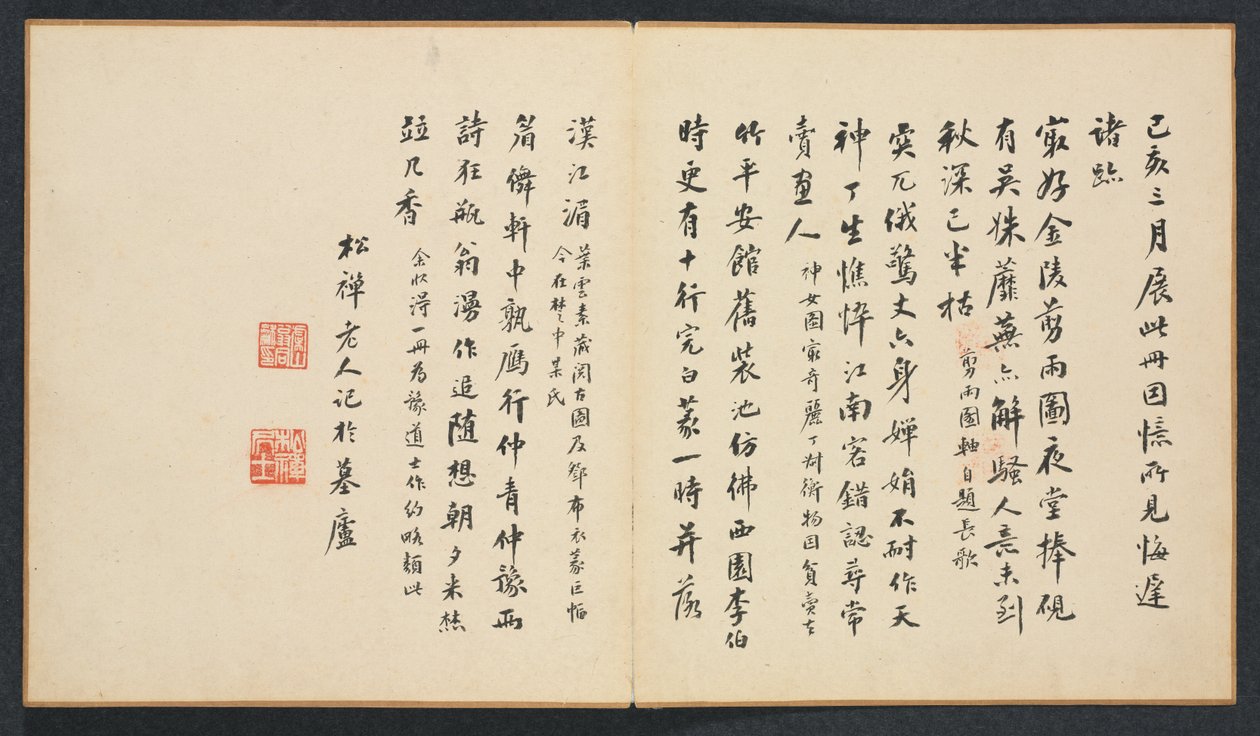 己亥三月展此冊因憶所見悔遲
諸跡
最好金陵剪雨圖夜堂捧硯
有吳姝蘼蕪亦解騷人意未到
秋深已半枯 剪雨圖軸自題長歌
突兀俄驚丈六身嬋娟不耐作天
神丁生憔悴江南客錯認尋常
賣畫人 神女圖最奇麗丁尉衡物因貧賣去
竹平安館舊裝池仿佛西園李伯
時更有十行完白篆一時并落
漢江湄 葉雲素藏閱古圖及鄧布衣篆巨幅
今在楚中某氏
眉儕軒中孰雁行仲青仲豫兩
詩狂瓶翁漫作追隨想朝夕米𥻘
並几香 余收得一冊為豫道士作約略類此
松禪老人記於墓廬
虞山翁同龢印
松禪居士